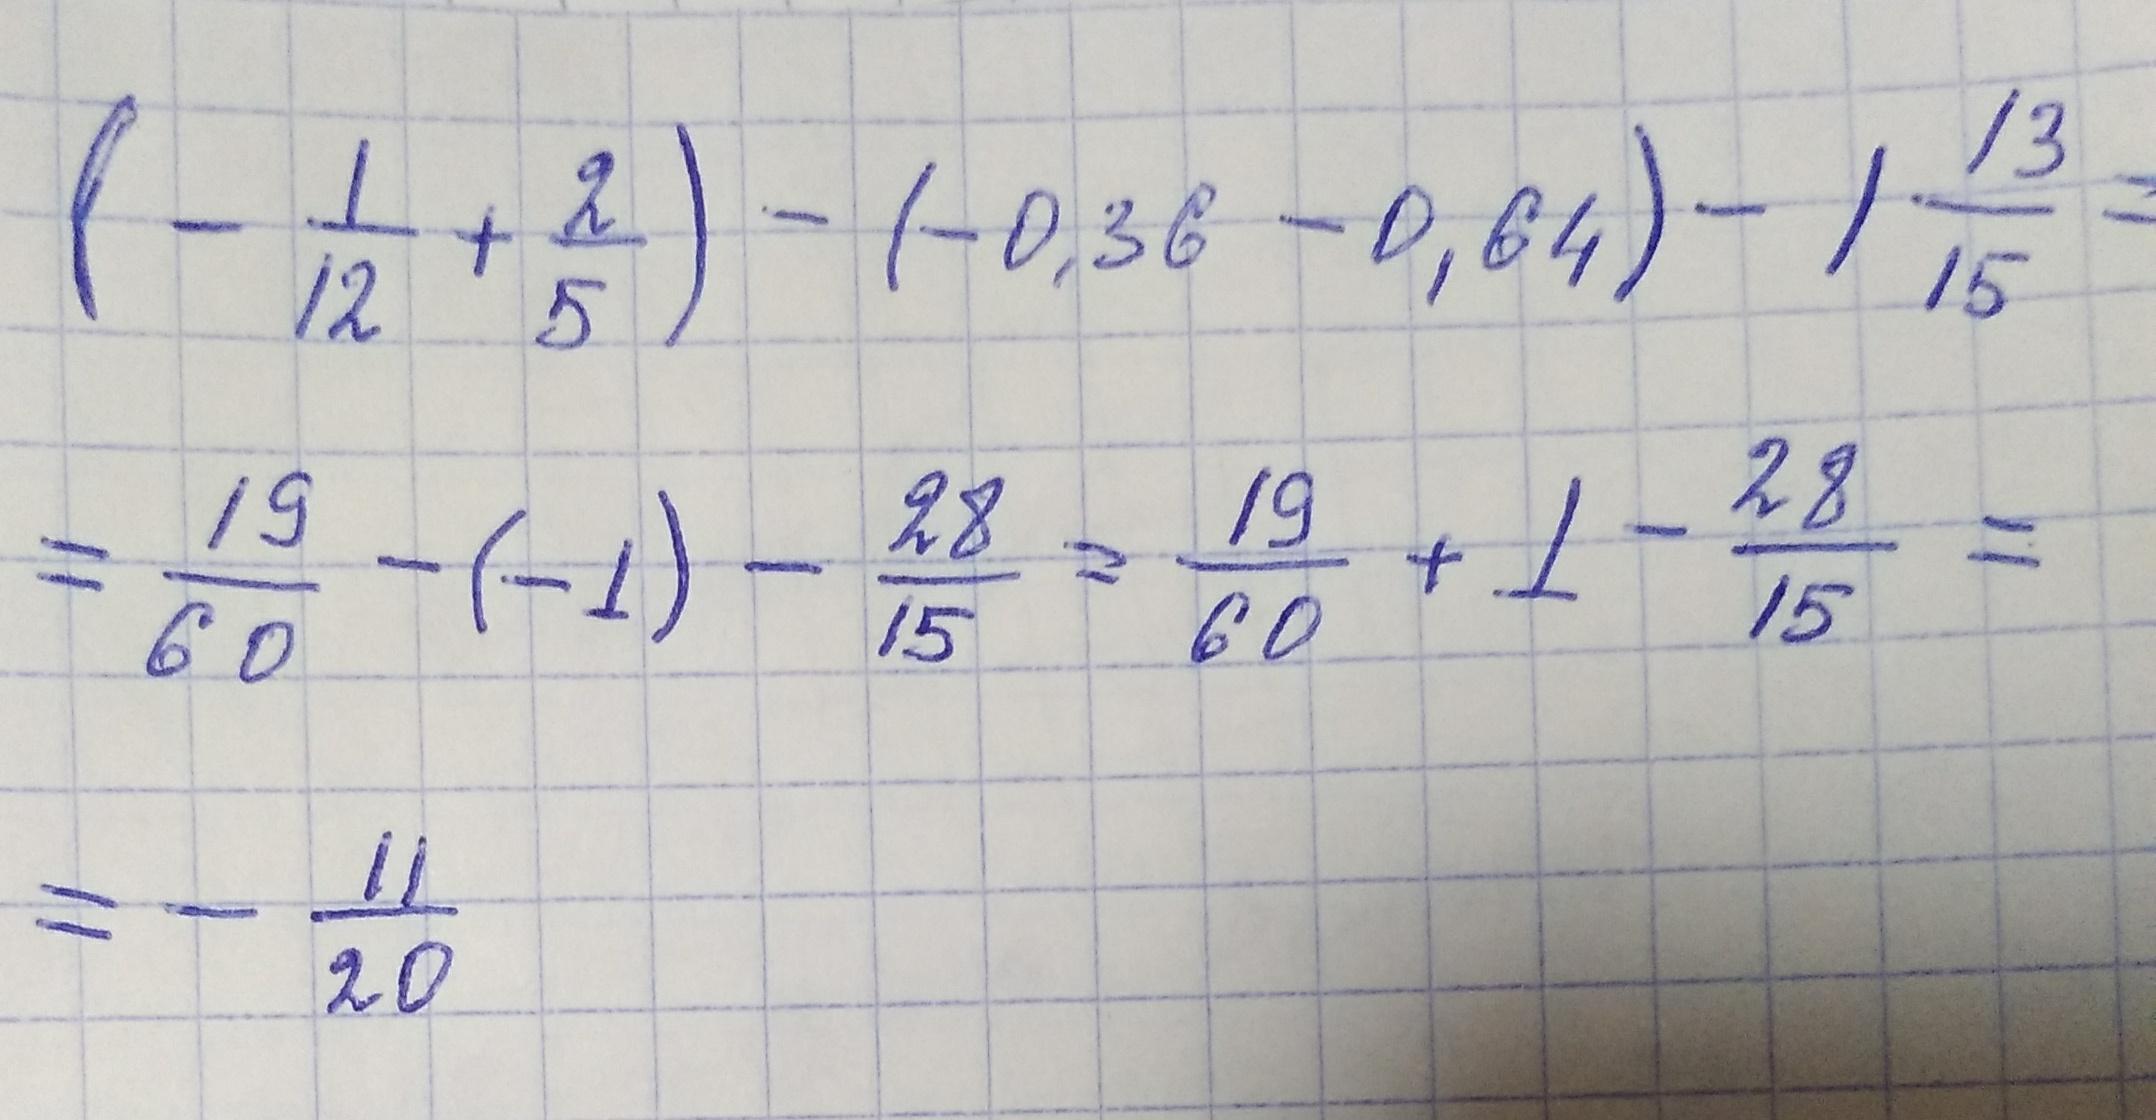 (- 1/12 + 2/5) - (-0,36 - 0,64) - 1 13/15 =
= 19/60 - (-1) - 28/15 = 19/60 + 1 - 28/15 =
= - 11/20